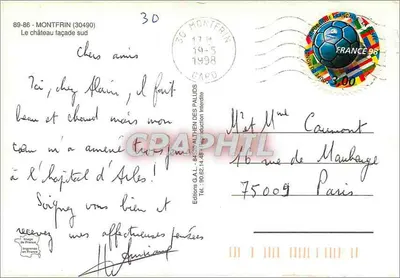 89-86 - MONTFRIN (30490)
Le château façade sud
30
Chers amis
Ici, chez Alain, il fait
beau et chaud mais mon
cœur m'a amené trois jours
à l'hôpital d'Arles !
Soignez vous bien et
recevez mes affectueuses pensées
30 MONTFRIN
19-5
1998
GARD
FRANCE 98
3,00
CARTPHIL
Reproduction interdite
M et Mme Caumont
16 rue de Maubeuge
75009 Paris